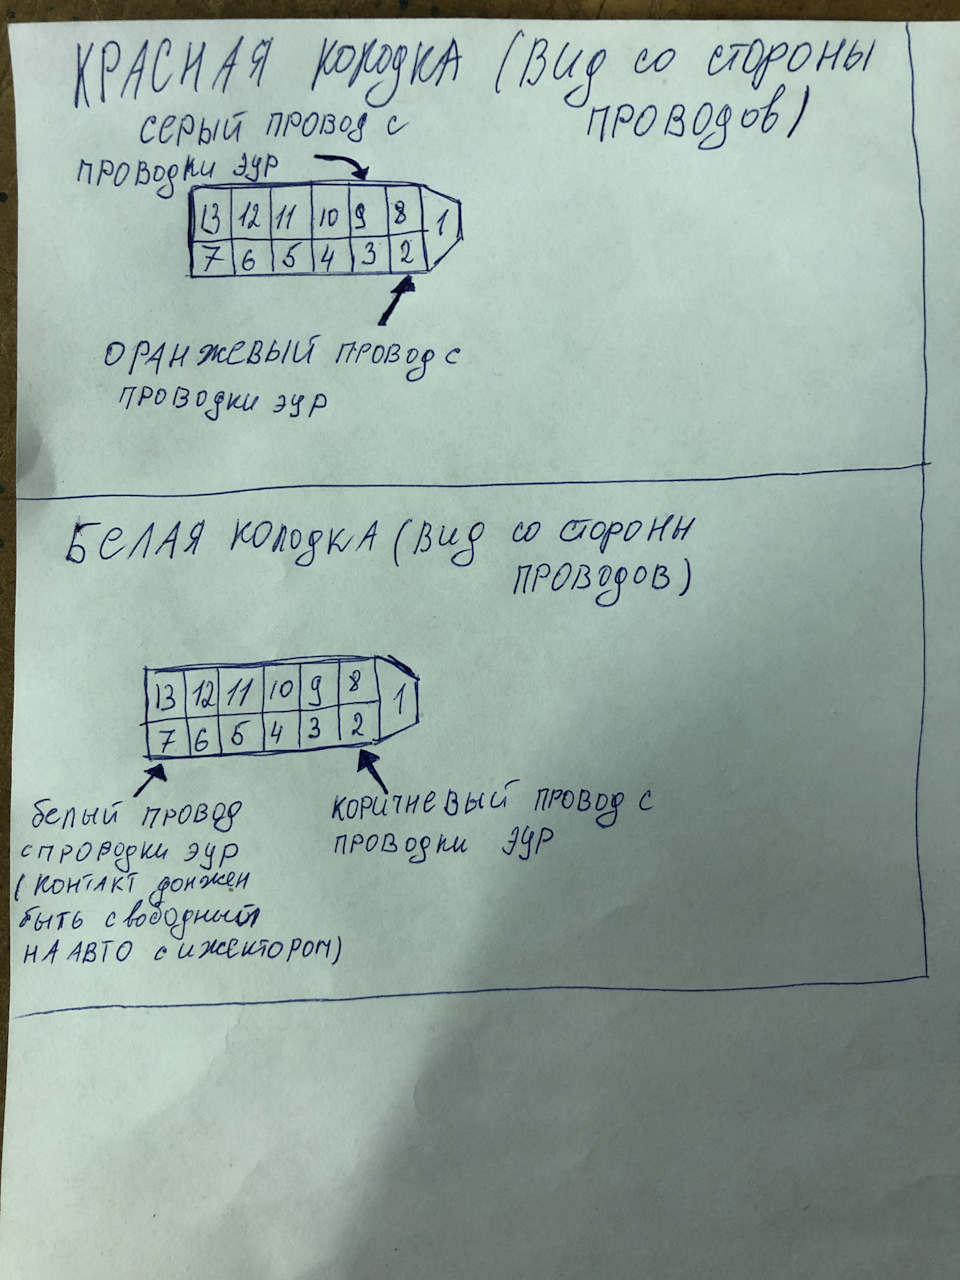 КРАСНАЯ КОЛОДКА (ВИД СО СТОРОНЫ
ПРОВОДОВ)
СЕРЫЙ ПРОВОД С
ПРОВОДКИ ЭУР
13 12 11 10 9 8 1
7 6 5 4 3 2
ОРАНЖЕВЫЙ ПРОВОД С
ПРОВОДКИ ЭУР
БЕЛАЯ КОЛОДКА (ВИД СО СТОРОНЫ
ПРОВОДОВ)
13 12 11 10 9 8 1
7 6 5 4 3 2
БЕЛЫЙ ПРОВОД
С ПРОВОДКИ ЭУР
(КОНТАКТ ДОЛЖЕН
БЫТЬ СВОБОДНЫЙ
НА АВТО С ИЖЕКТОРОМ)
КОРИЧНЕВЫЙ ПРОВОД С
ПРОВОДКИ ЭУР